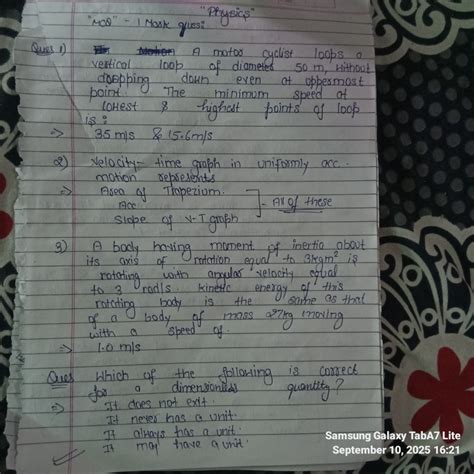 "Physics"
"MCQ" - 1 Mark quesi
Ques 1) A motor cyclist loops a
vertical loop of diameter 50 m, without
dropping down even at oppermost
point. The minimum speed at
lowest & highest points of loop
is :
=> 35 m/s & 15.6 m/s
2) Velocity - time graph in uniformly acc.
motion represents
=> Area of Trapezium.
Acc
All of these
Slope of V-T graph
3) A body having moment of inertia about
its axis of rotation equal to 3 kgm² is
rotating with angular velocity equal
to 3 rad/s kinetic energy of this
rotating body is the same as that
of a body of mass 27kg moving
with a speed of.
=> 1.0 m/s
Ques Which of the following is correct
for a dimensionless quantity?
=> It does not exit.
It never has a unit.
It always has a unit.
It may have a unit.
Samsung Galaxy TabA7 Lite
September 10, 2025 16:21